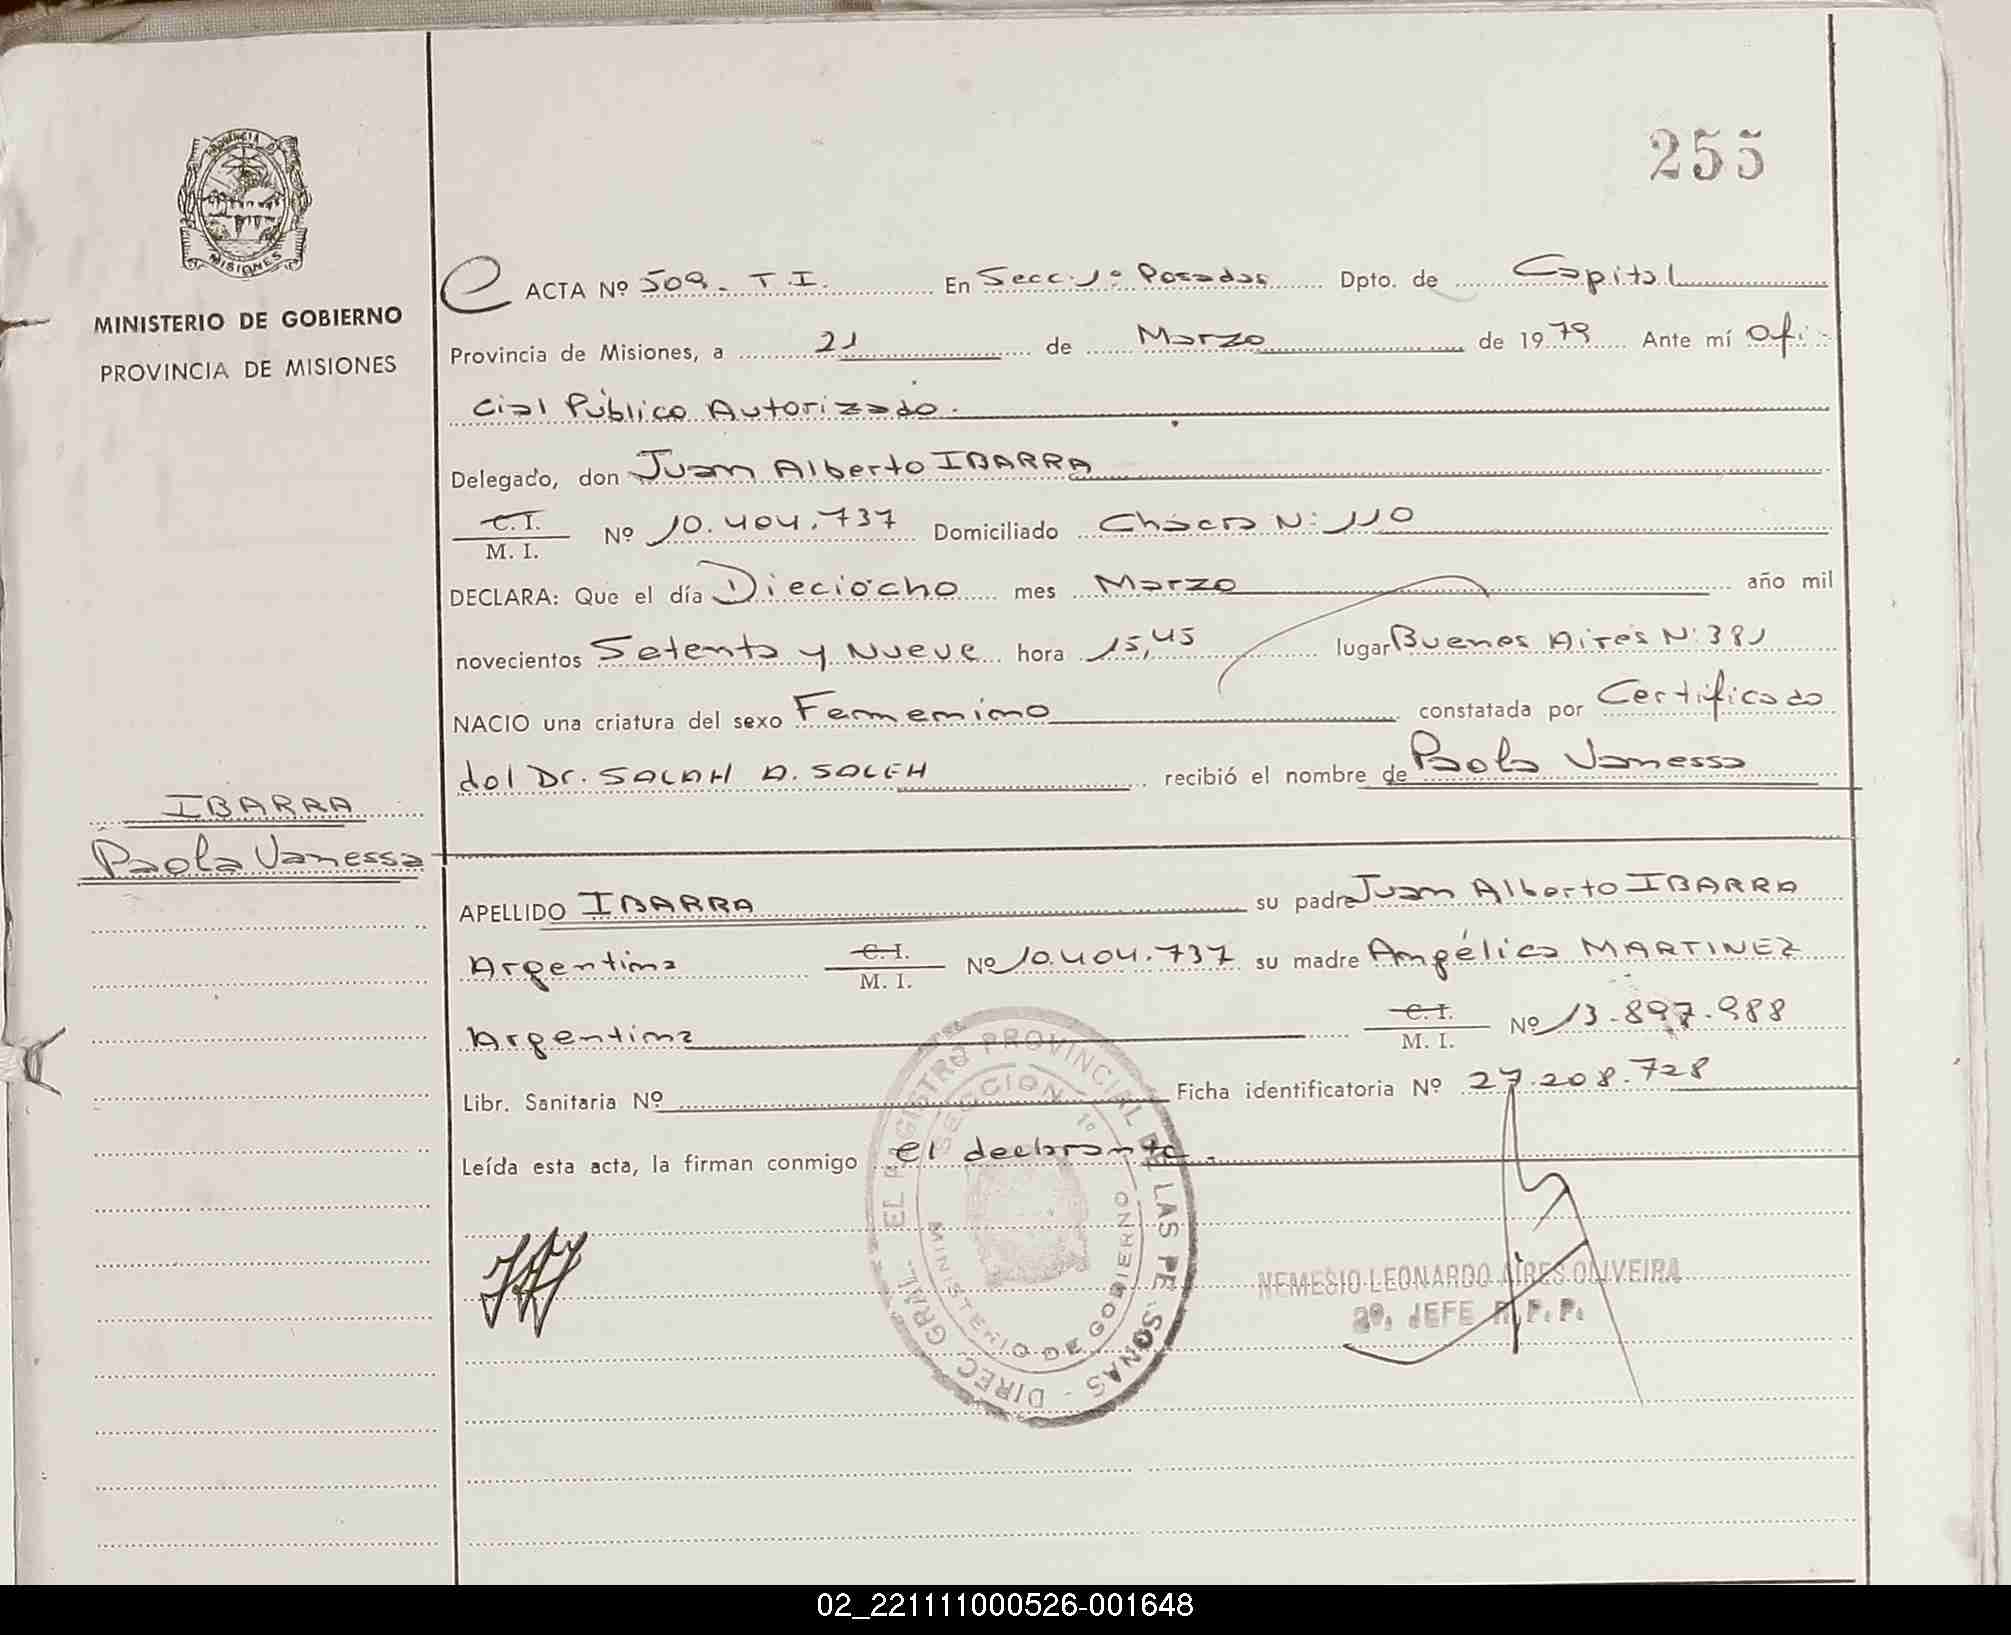 255
PROVINCIA D
MISIONES
MINISTERIO DE GOBIERNO
PROVINCIA DE MISIONES
ACTA Nº 509. T I. En Secc. 1º Posadas Dpto. de Capital
Provincia de Misiones, a 21 de Marzo de 1979 Ante mí Ofi-
cial Público Autorizado.
Delegado, don Juan Alberto IBARRA
C. I.
M. I. Nº 10.404.737 Domiciliado Chacra N: 110
DECLARA: Que el día Dieciocho mes Marzo año mil
novecientos Setenta y Nueve hora 15,45 lugar Buenos Aires N: 381
NACIO una criatura del sexo Femenino constatada por Certificado
del Dr. SALAH A. SALEH recibió el nombre de Paola Vanessa
IBARRA
Paola Vanessa
APELLIDO IBARRA su padre Juan Alberto IBARRA
Argentina C. I.
M. I. Nº 10.404.737 su madre Angélica MARTINEZ
Argentina C. I.
M. I. Nº 13.897.988
Libr. Sanitaria Nº Ficha identificatoria Nº 27.208.728
Leída esta acta, la firman conmigo el declarante.
DIREC GRAL. EL REGISTRO PROVINCIAL DE LAS PERSONAS
SECCION 1º
MINISTERIO DE GOBIERNO
NEMESIO LEONARDO AIRES OLIVEIRA
2º. JEFE R.P.P.
02_221111000526-001648